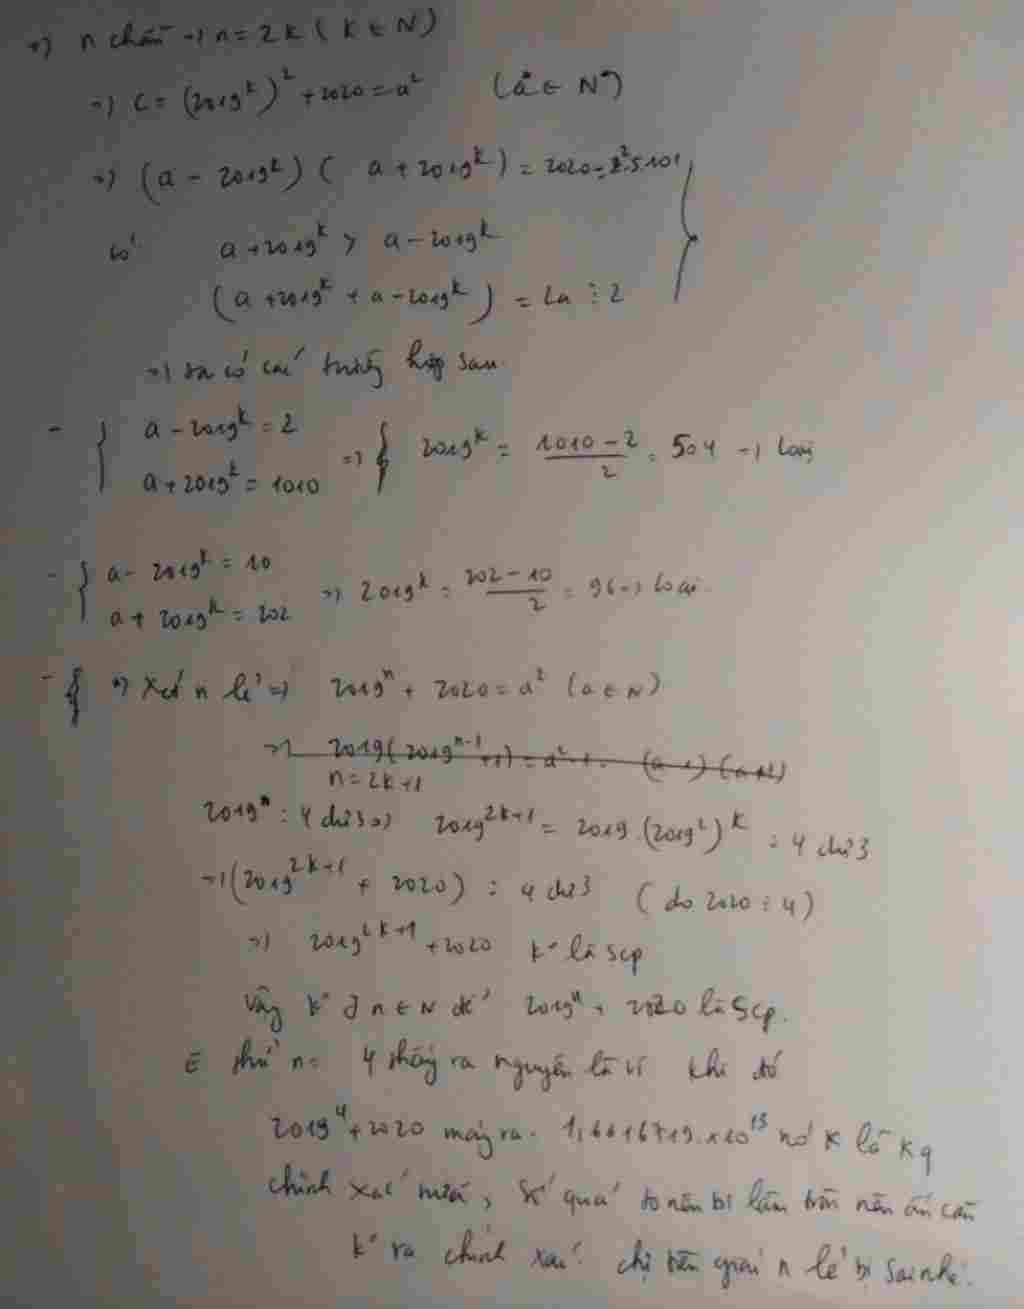 =) n chẵn → n = 2k (k ∈ N)
=) C = (2019^k)^2 + 2020 = a^2 (a ∈ N*)
=) (a - 2019^k) ( a + 2019^k ) = 2020 = 2^2.5.101
Có a + 2019^k > a - 2019^k
(a + 2019^k + a - 2019^k) = 2a ⋮ 2
=) ta có các trường hợp sau.
- { a - 2019^k = 2
a + 2019^k = 1010 =) { 2019^k = (1010 - 2)/2 = 504 =) loại
- { a - 2019^k = 10
a + 2019^k = 202 =) 2019^k = (202 - 10)/2 = 96 =) loại.
- { =) Xét n lẻ =) 2019^n + 2020 = a^2 (a ∈ N)
=) 2019(2019^(n-1) + 1) = a^2 - 1 = (a-1)(a+1)
n = 2k+1
2019^n : 4 dư 3 =) 2019^(2k+1) = 2019.(2019^2)^k : 4 dư 3
=) (2019^(2k+1) + 2020) : 4 dư 3 (do 2020 ⋮ 4)
=) 2019^(2k+1) + 2020 k° là scp
Vậy k° ∃ n ∈ N để 2019^n + 2020 là scp.
E thử n = 4 thấy ra nguyên là vì khi đó
2019^4 + 2020 máy ra 1,6616719.x10^13 nó k là kq
chính xác nữa, số quá to nên bị làm tròn nên ấn căn
k° ra chính xác. chị trên giải n lẻ bị sai nhé.